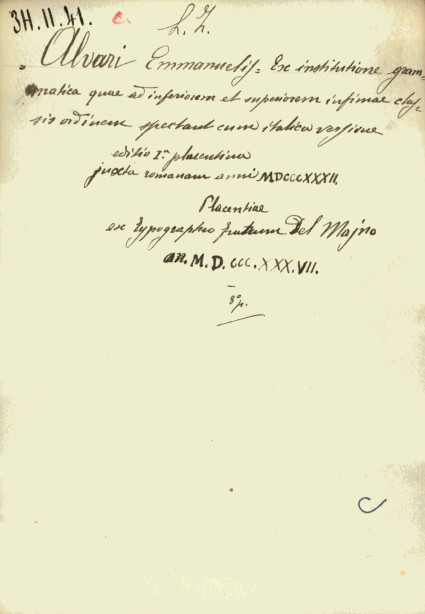 3H.II.41.
L. Z.
Alvari Emmanuelis = Ex institutione gram-
matica quae ad inferiorem et superiorem infimae clas-
sis ordinem spectant cum italica versione
editio Iª placentina
juxta romanam anni MDCCCXXXII.
Placentiae
ex typographeo fratrum Del Majno
an. M.D.CCC.XXX.VII.
8º p.